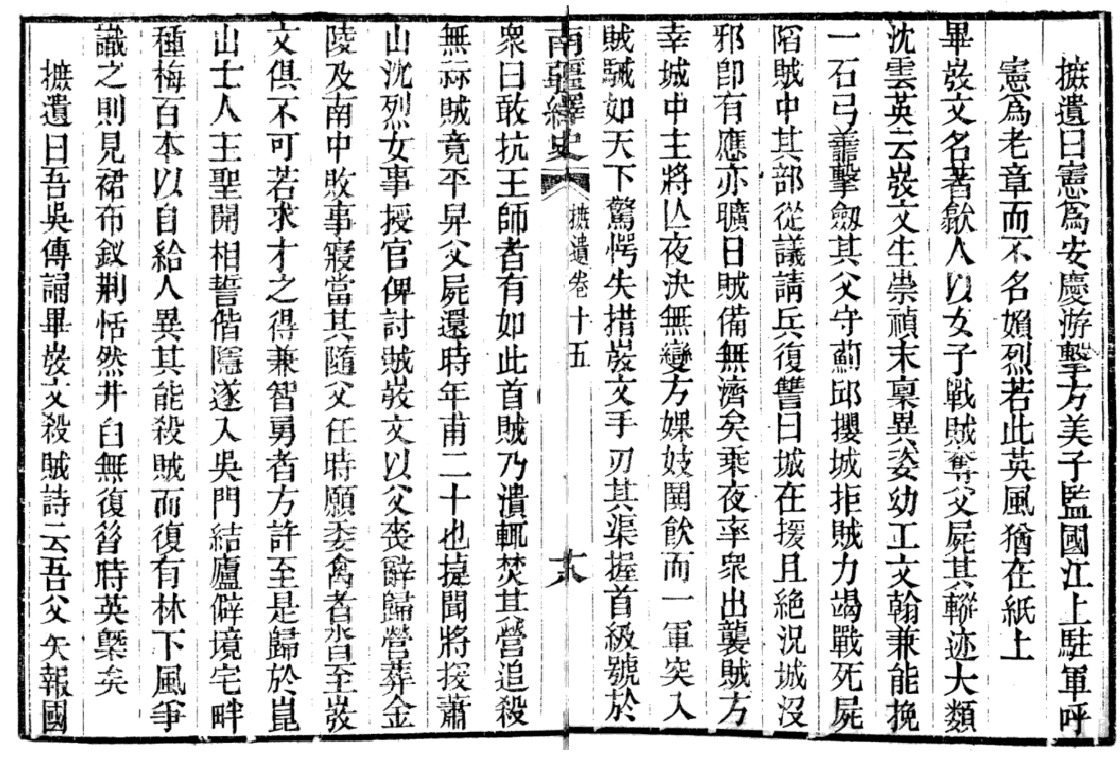 摭遺曰憲爲安慶游擊方美子監國江上駐軍呼
憲爲老章而不名嬪烈若此英風猶在紙上
畢弢文名著歙人以女子戰賊奪父屍其迹大類
沈雲英云弢文生崇禎末稟異姿幼工文翰兼能挽
一石弓善擊劔其父守薊邱攖城拒賊力竭戰死屍
陷賊中其部從議請兵復讐曰城在援且絕況城沒
邪卽有應亦曠日賊備無濟矣乘夜率衆出襲賊方
幸城中主將亾夜決無變方婐妓鬨飲而一軍突入
賊駴如天下驚愕失措弢文手刃其渠握首級號於
南疆繹史 摭遺卷十五 十八
衆曰敢抗王師者有如此首賊乃潰輒焚其營追殺
無祘賊竟平舁父屍還時年甫二十也㨗聞將援蕭
山沈烈女事授官俾討賊弢文以父喪辭歸營葬金
陵及南中敗事寢當其隨父任時願委禽者沓至弢
文俱不可若求才之得兼智勇者方許至是歸於崑
山士人王聖開相誓偕隱遂入吳門結廬僻境宅畔
種梅百本以自給人異其能殺賊而復有林下風爭
識之則見裙布釵荆恬然井臼無復昝時英槩矣
摭遺曰吾吳傳誦畢弢文殺賊詩云吾父矢報國